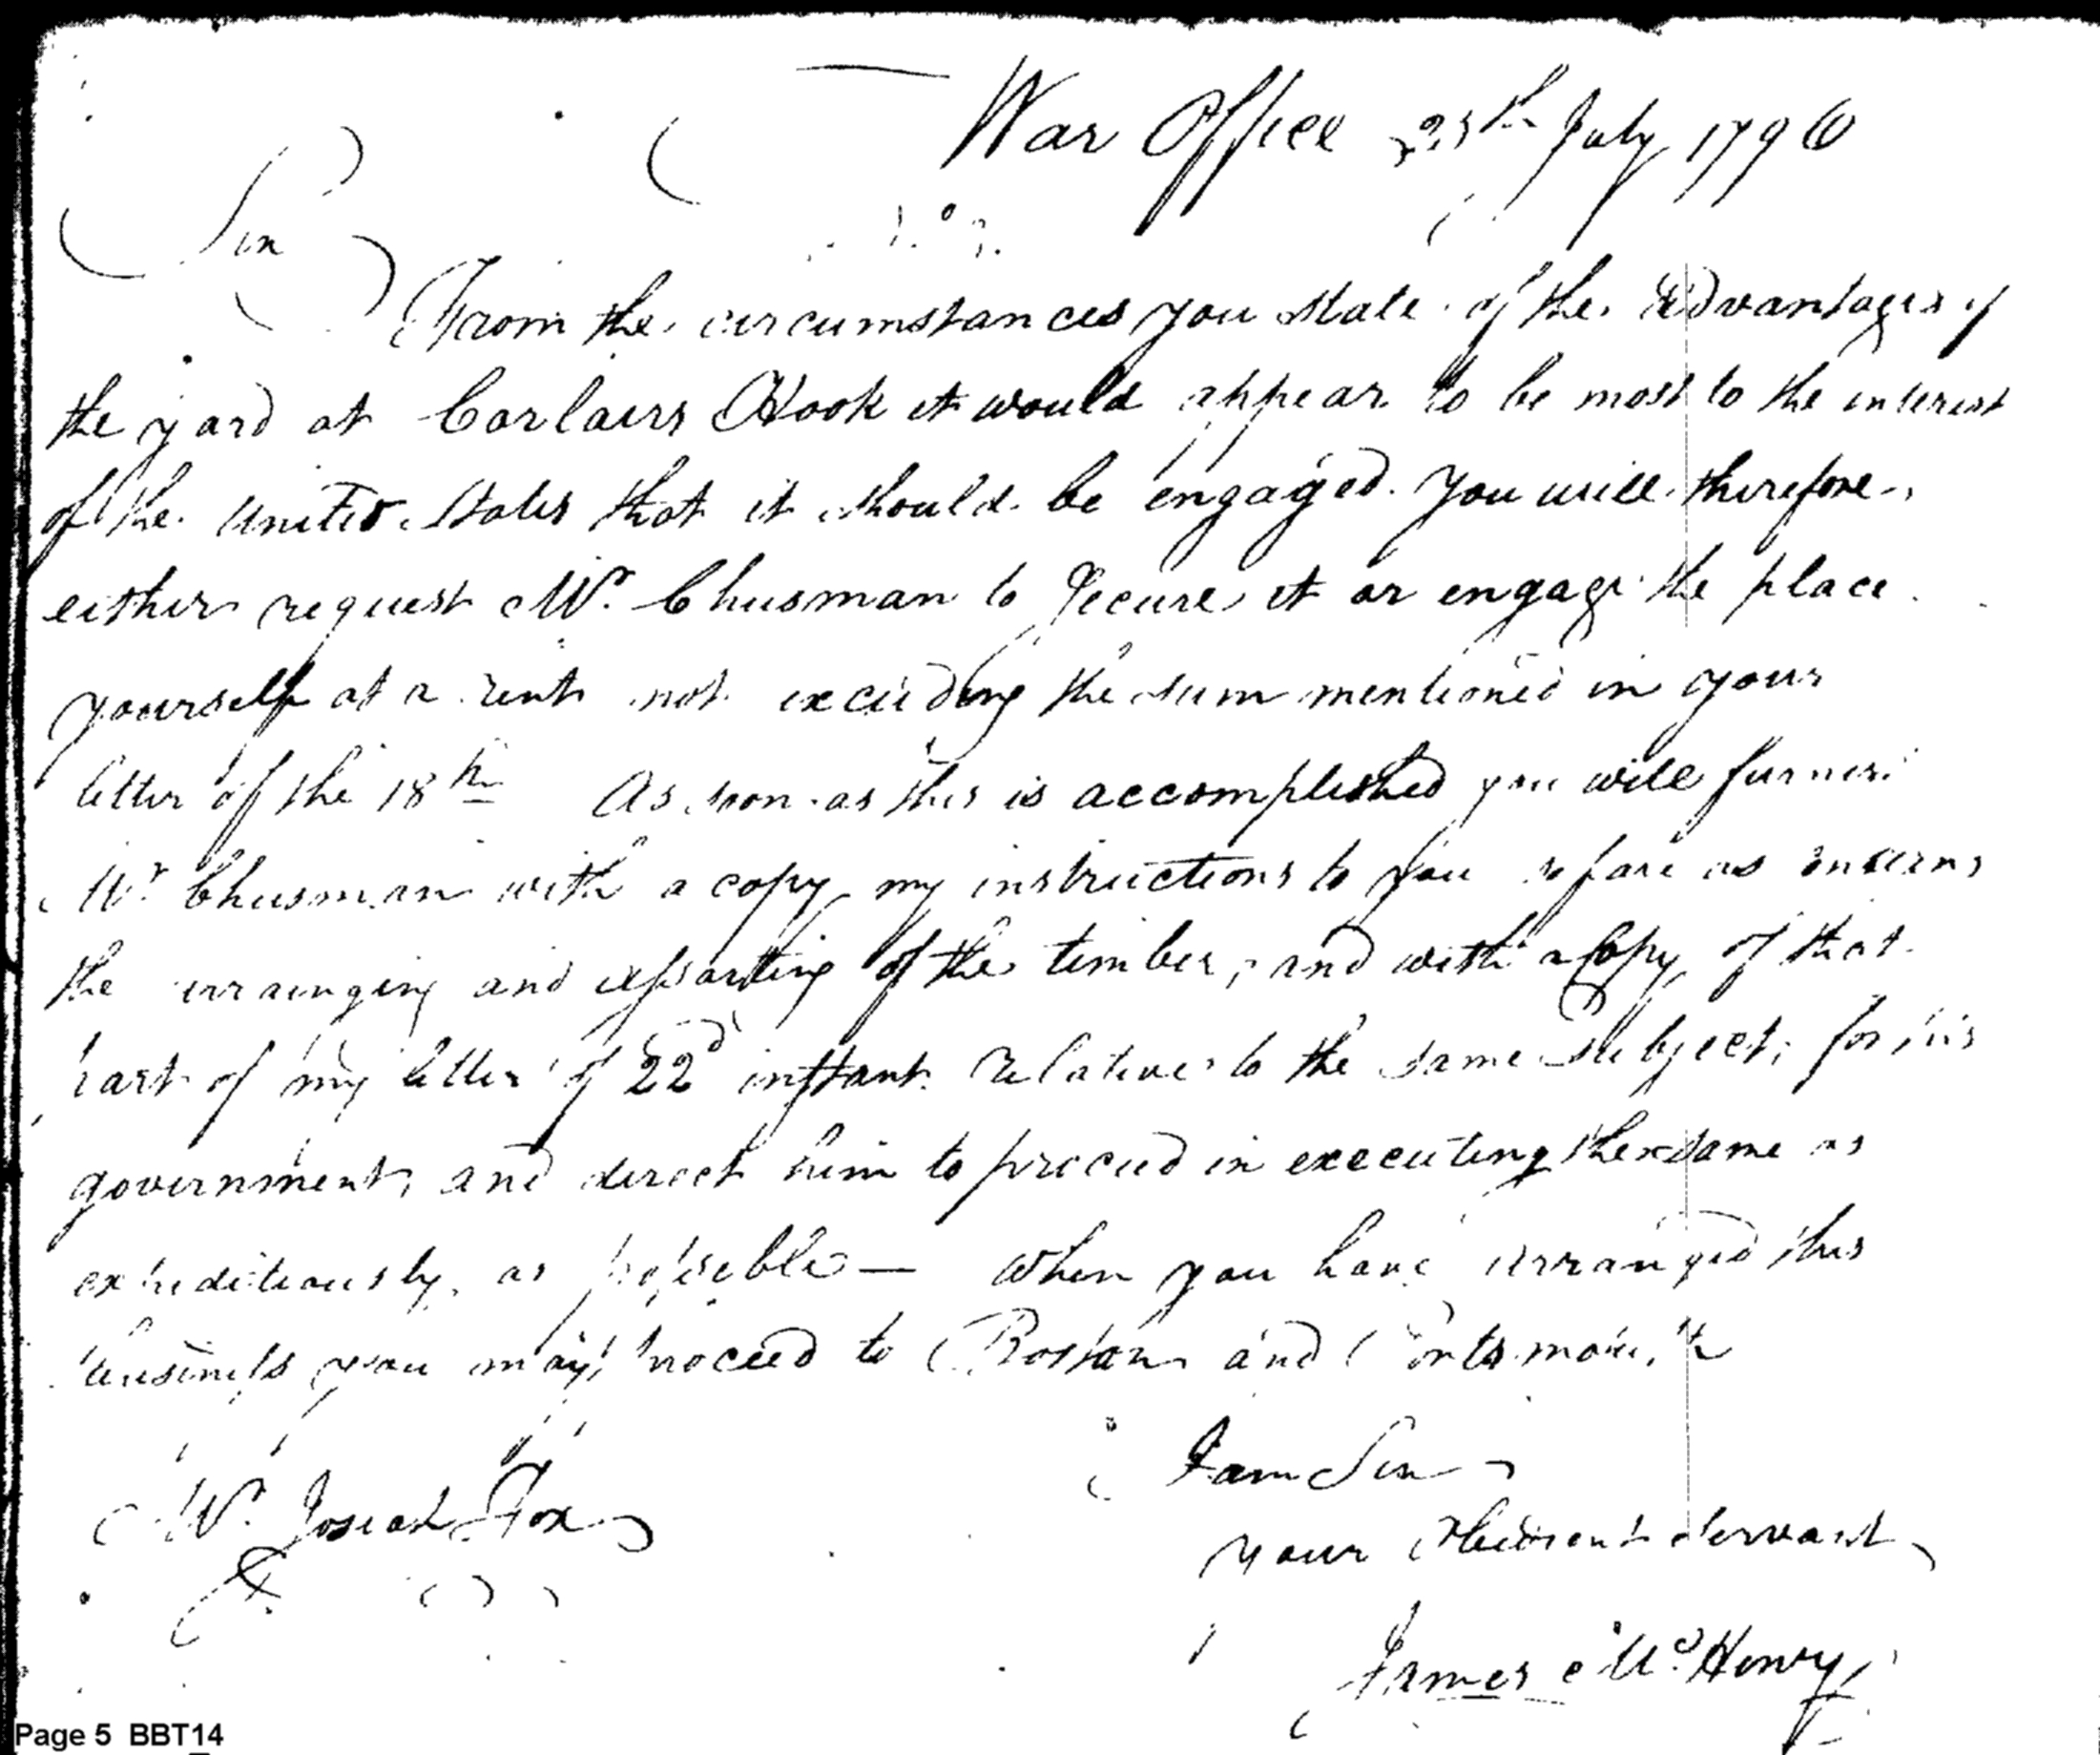 War Office 25th July 1796
Sir
From the circumstances you state of the Advantages of
the yard at Corlaers Hook it would appear to be most to the interest
of the United States that it should be engaged. You will therefore
either request Mr. Cheesman to Secure it or engage the place
yourself at a rent not exceeding the sum mentioned in your
letter of the 18th As soon as this is accomplished you will furnish
Mr. Cheesman with a copy my instructions to you so fare as concerns
the arrainging and assorting of the timber, and with a Copy of that
part of my letter of 22d instant relative to the same subject, for his
government, and direct him to proceed in executing the same as
expeditiously as possible — When you have arranged this
business you may proceed to Boston and Portsmouth
I am Sir
Mr. Josiah Fox
your obedient servant
James McHenry
Page 5 BBT14